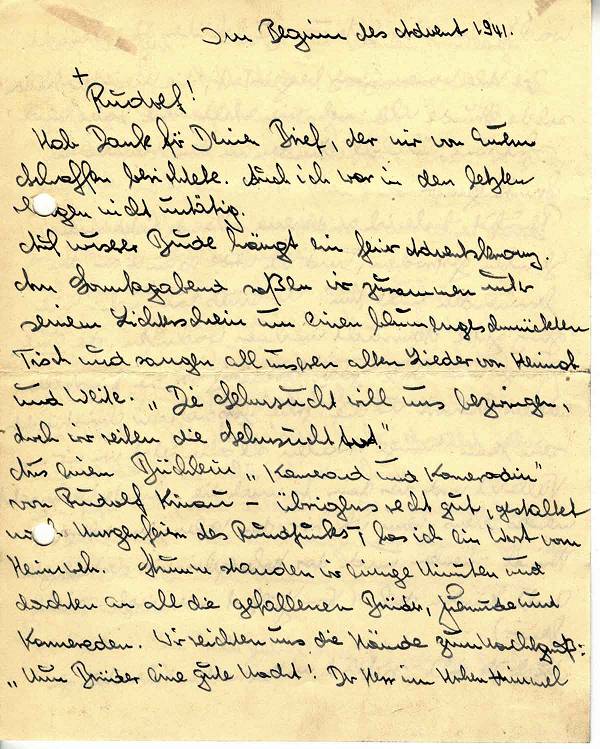 Im Beginn des Advent 1941.
+
Rudolf!
Hab Dank für Deinen Brief, der mir von Eurem
Schaffen berichtete. Auch ich war in den letzten
Tagen nicht untätig.
Auf unserer Bude hängt ein feiner Adventskranz.
Am Sonntagabend saßen wir zusammen unter
seinem Lichterschein um einen blumengeschmückten
Tisch und sangen all unsere alten Lieder von Heimat
und Weite. „Die Sehnsucht will uns bezwingen,
doch wir reiten die Sehnsucht tot."
Aus einem Büchlein „Kamerad und Kameradin"
von Rudolf Kinau – übrigens recht gut, gestaltet
nach Morgenfeiern des Rundfunks –, las ich ein Wort vom
Heimweh. Stumm standen wir einige Minuten und
dachten an all die gefallenen Brüder, Freunde und
Kameraden. Wir reichten uns die Hände zum Nachtgruß:
„Nun Brüder eine gute Nacht! Der Herr im hohen Himmel